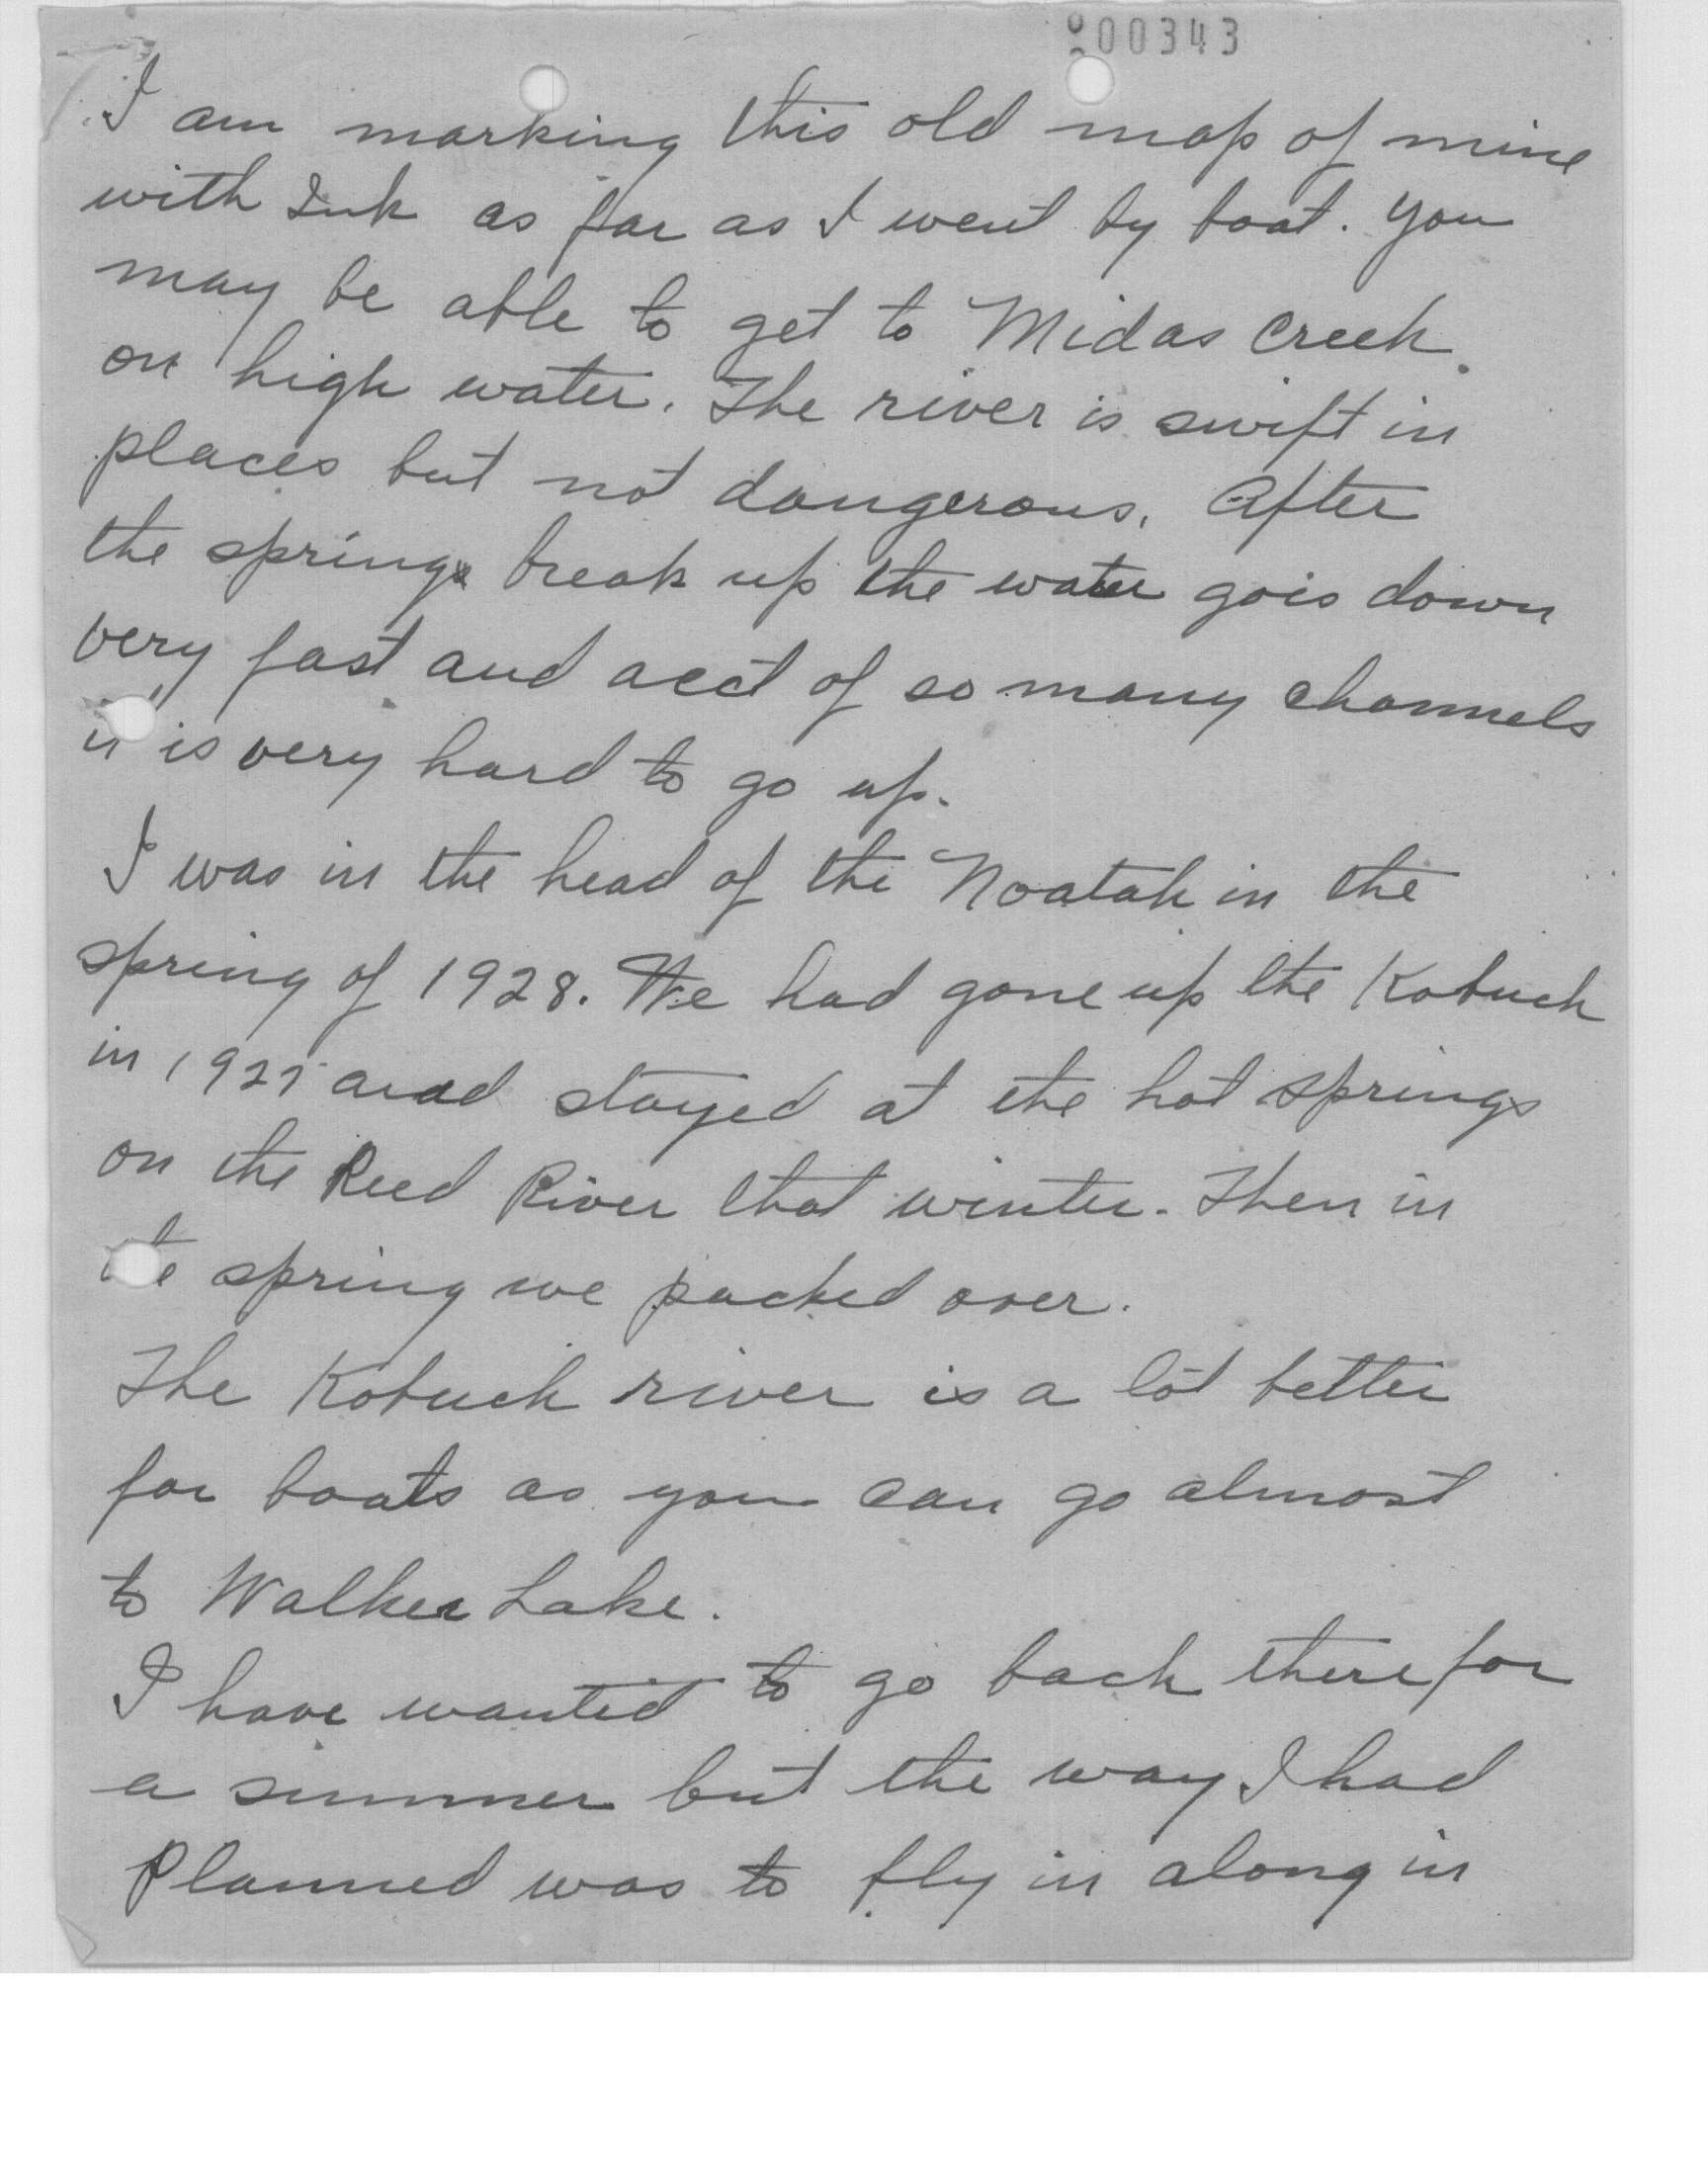 00343
I am marking this old map of mine
with Ink as far as I went by boat. You
may be able to get to Midas Creek
on high water. The river is swift in
places but not dangerous. After
the spring break up the water gois down
very fast and acct of so many channels
it is very hard to go up.
I was in the head of the Noatak in the
spring of 1928. We had gone up the Kobuck
in 1927 and stayed at the hot springs
on the Reed River that winter. Then in
the spring we packed over.
The Kobuck river is a lot better
for boats as you can go almost
to Walker Lake.
I have wanted to go back there for
a summer but the way I had
planned was to fly in along in